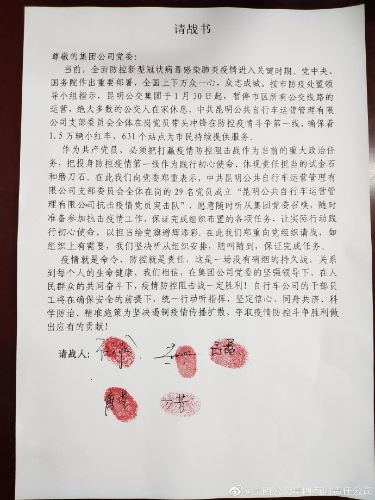 请战书
尊敬的集团公司党委：
当前，全面防控新型冠状病毒感染肺炎疫情进入关键时期。党中央、
国务院作出重要部署，全国上下万众一心、众志成城。按市防处置领
导小组指示，昆明公交集团于1月30起，暂停市区所有公交线路的
运营，绝大多数的公交人在家休息，中共昆明公共自行车运营管理有
限公司支部委员会全体在岗党员带头冲锋在防控疫情斗争第一线，确保着
1.5万辆小红车，631个站点为市民持续提供服务。
作为共产党员，必须把打赢疫情防控阻击战作为当前的重大政治任
务，把投身防控疫情第一线作为践行初心使命、体现责任担当的试金石
和磨刀石。在此我们向党委郑重表示，中共昆明公共自行车运营管理有
限公司支部委员会全体在岗的29名党员成立“昆明公共自行车运营管
理有限公司抗击疫情党员突击队”，愿意随时听从集团党委召唤，随时
准备参加抗击疫情工作，保证完成组织布置的各项任务，让实际行动践
行初心使命，以担当给党旗增辉添彩。在此我们郑重向党组织请战，如
组织上有需要，我们坚决听从组织安排，随叫随到，保证完成任务。
疫情就是命令，防控就是责任，这是一场没有硝烟的持久战，关系
到每个人的生命健康。我们相信，在集团公司党委的坚强领导下，在人
民群众的共同奋斗下，疫情防控阻击战一定胜利！自行车公司的干部员
工将在确保安全的前提下，统一行动听指挥，坚定信心、同舟共济、科
学防治、精准施策为坚决遏制疫情传播扩散、夺取疫情防控斗争胜利做
出应有的贡献！
请战人：